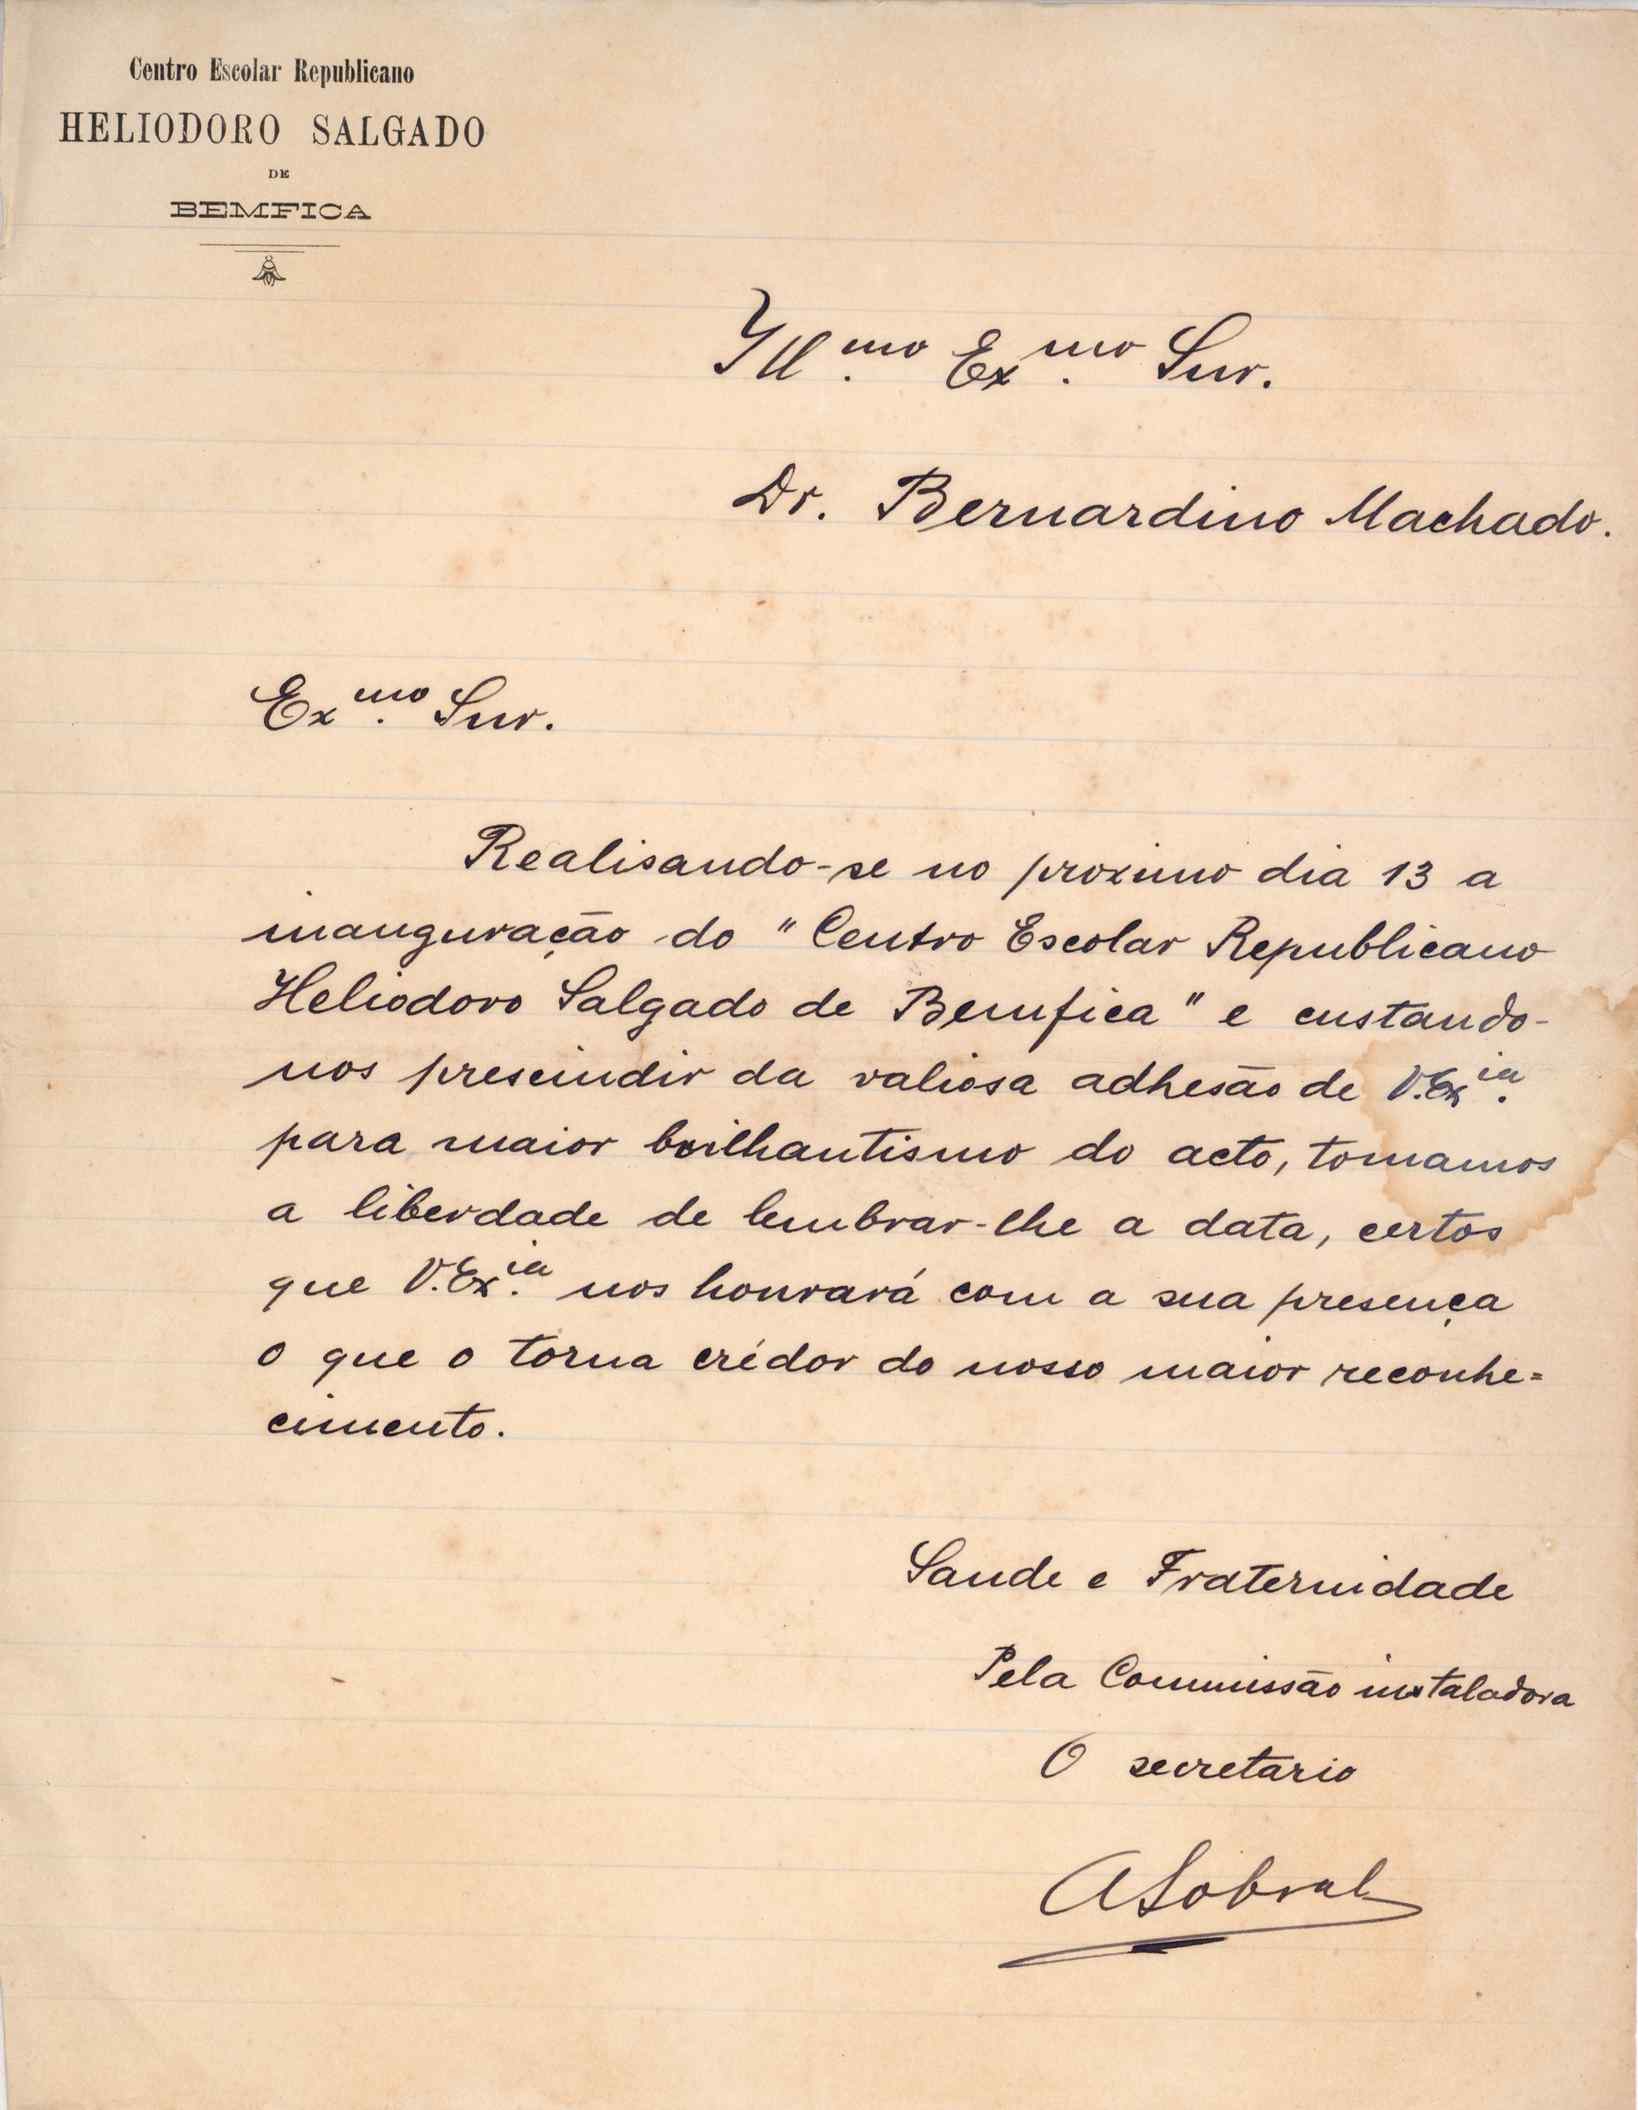 Centro Escolar Republicano
HELIODORO SALGADO
DE
BEMFICA
Ill.mo Ex.mo Snr.
Dr. Bernardino Machado.
Ex.mo Snr.
Realisando-se no proximo dia 13 a
inauguração do "Centro Escolar Republicano
Heliodoro Salgado de Bemfica" e custando-
nos prescindir da valiosa adhesão de V. Ex.ia
para maior brilhantismo do acto, tomamos
a liberdade de lembrar-lhe a data, certos
que V. Ex.ia nos honrará com a sua presença
o que o torna crédor do nosso maior reconhe=
cimento.
Saude e Fraternidade
Pela Commissão instaladora
O secretario
ASobral